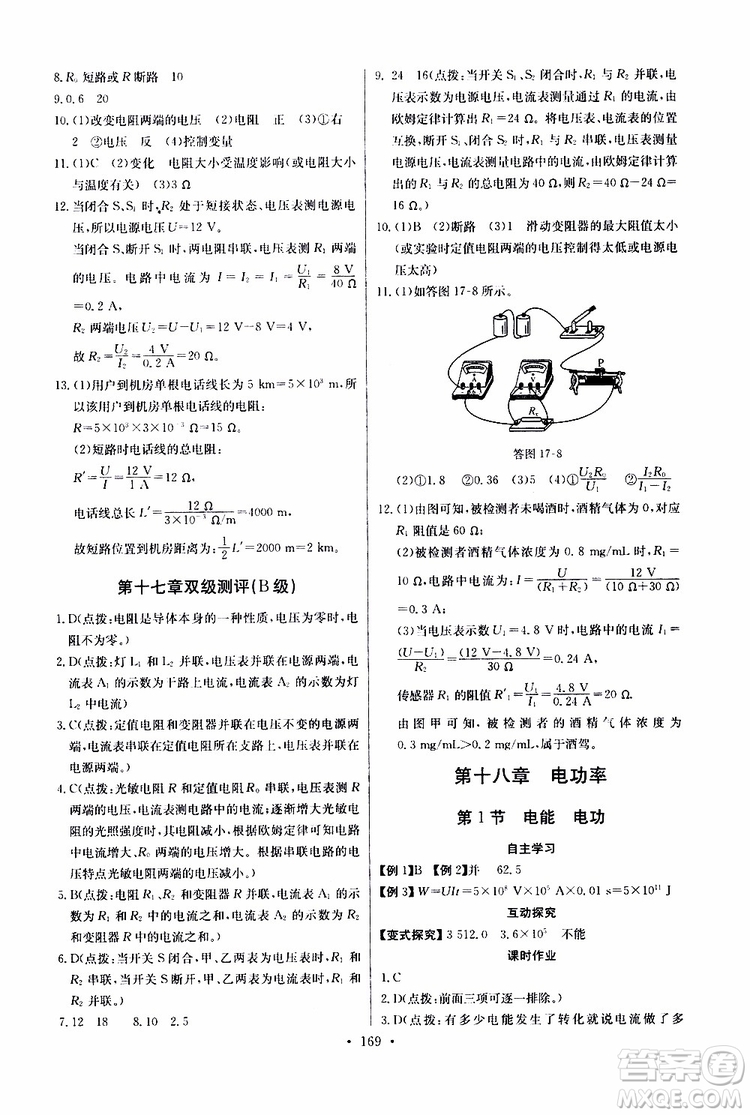 8. R₀ 短路或 R 断路 10
9. 0.6 20
10. (1)改变电阻两端的电压 (2)电阻 正 (3)①右
2 ②电压 反 (4)控制变量
11. (1)C (2)变化 电阻大小受温度影响(或电阻大小
与温度有关) (3)3 Ω
12. 当闭合 S、S₁ 时,R₂ 处于短接状态、电压表测电源电
压,所以电源电压 U=12 V.
当闭合 S、断开 S₁ 时,两电阻串联,电压表测 R₁ 两端
的电压. 电路中电流为 I=I₂=I₁=U₁/R₁=8 V/40 Ω
=0.2 A,
R₂ 两端电压 U₂=U−U₁=12 V−8 V=4 V,
故 R₂=U₂/I₂=4 V/0.2 A=20 Ω.
13. (1)用户到机房单根电话线长为 5 km=5×10³ m,所
以该用户到机房单根电话线的电阻:
R=5×10³×3×10⁻³ Ω=15 Ω
(2)短路时电话线的总电阻:
R′=U/I=12 V/1 A=12 Ω,
电话线总长 L′=12 Ω/3×10⁻³ Ω/m=4000 m;
故短路位置到机房距离为:1/2 L′=2000 m=2 km.
第十七章双级测评(B 级)
1. D(点拨:电阻是导体本身的一种性质,电压为零,电
阻不为零.)
2. D(点拨:灯 L₁、L₂ 并联,电压表并联在电源两端,电
流表 A₁ 的示数为干路上电流,电流表 A₂ 的示数为灯
L₂ 中电流.)
3. C(点拨:定值电阻和变阻器并联在电压不变的电源两
端,电流表串联在定值电阻所在支路上,电压表并联在
电源两端.)
4. C(点拨:光敏电阻 R 和定值电阻 R₀ 串联,电压表测 R
两端的电压,电流表测电路中的电流;逐渐增大光敏电
阻的光照强度时,其电阻减小.根据欧姆定律可以判断
电路中电流变大,R₀ 两端的电压变大;根据串联电路电
压特点光敏电阻 R 两端的电压减小.)
5. B(点拨:电阻 R₁、R₂ 和变阻器 R 并联,电流表 A₁ 的示
数为 R₁ 中与变阻器 R 的电流之和,电流表 A₂ 示数为 R₂
和变阻器 R 中的电流之和.)
6. D(点拨:当开关 S 闭合,甲、乙两表为电压表时两个电
阻 R₁、R₂ 并联;当开关 S 断开,甲、乙两表为电流表时
两个电阻 R₁、R₂ 并联.)
7. 12 18 8. 10 2.5
9. 24 16(点拨:当开关 S₁、S₂ 闭合时,R₁ 与 R₂ 并联,电
压表示数为电源电压,电流表示数为 R₁ 的电流,由
欧姆定律计算出 R₁ 为 24 Ω;当把电流表与电压表的位置
互换,断开开关 S₁、S₂ 时,R₁ 与 R₂ 串联,电压表测量
电源电压,电流表测量电路中的电流,由欧姆定律计算
出 R₁ 与 R₂ 的总电阻为 40 Ω,则 R₂ 为 40 Ω−24 Ω=
16 Ω.)
10. (1)B (2)断路 (3)1 滑动变阻器的最大阻值太小
(或实验时定值电阻两端的电压控制得太低或电源电
压太高)
11. (1)如答图 17-8 所示。
A
V
P
Rₓ
答图 17-8
(2)①1.8 ②0.36 (3)5 (4)①U₂R₀/U₁ ②I₁R₀/I₁−I₂
12. (1)由图可知,被检测者未喝酒时,酒精气体为 0,对应
R₁ 阻值是 60 Ω;
(2)被检测者酒精气体浓度为 0.8 mg/mL 时,R₁=
10 Ω,电路中的电流:I=U/(R₁+R₂)=12 V/(10 Ω+30 Ω)
=0.3 A;
(3)当电压表示数 U₁=4.8 V 时,电路中的电流 I=
(U−U₁)/R₂=(12 V−4.8 V)/30 Ω=0.24 A,
传感器 R₁ 的阻值 R′₁=U₁/I=4.8 V/0.24 A=20 Ω,
由图甲可知,被检测者的酒精气体浓度为
0.3 mg/mL>0.2 mg/mL,所以,属于酒驾.
第十八章 电功率
第 1 节 电能 电功
自主学习
【例 1】B 【例 2】并 62.5
【例 3】W=UIt=5×10⁸ V×10⁵ A×0.01 s=5×10¹¹ J
互动探究
【变式探究】3 512.0 3.6×10⁵ 不能
课时作业
1. C
2. D(点拨:前面三项可逐一排除。)
3. D(点拨:有多少电能发生了转化就说电流做了多
169
答案圈